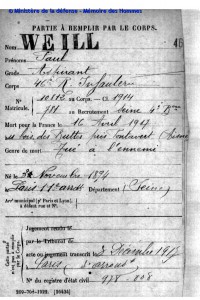 © Ministère de la défense - Mémoire des Hommes
PARTIE À REMPLIR PAR LE CORPS.
Nom WEILL
46
Prénoms Paul
Grade Aspirant
Corps 46e R. Infanterie
N° 10882 au Corps. — Cl. 1914
Matricule. 988 au Recrutement Seine 4e Bau
Mort pour la France le 16 Avril 1917
au bois des Buttes près Pontavert (Aisne)
Genre de mort Tué à l'ennemi
Né le Novembre 1894
Paris 11e arrt Département (Seine)
Arr' municipal (p' Paris et Lyon),
à défaut rue et N°.
Jugement rendu le
par le Tribunal de
acte ou jugement transcrit le Décembre 1917
Paris arrondt
N° du registre d'état civil